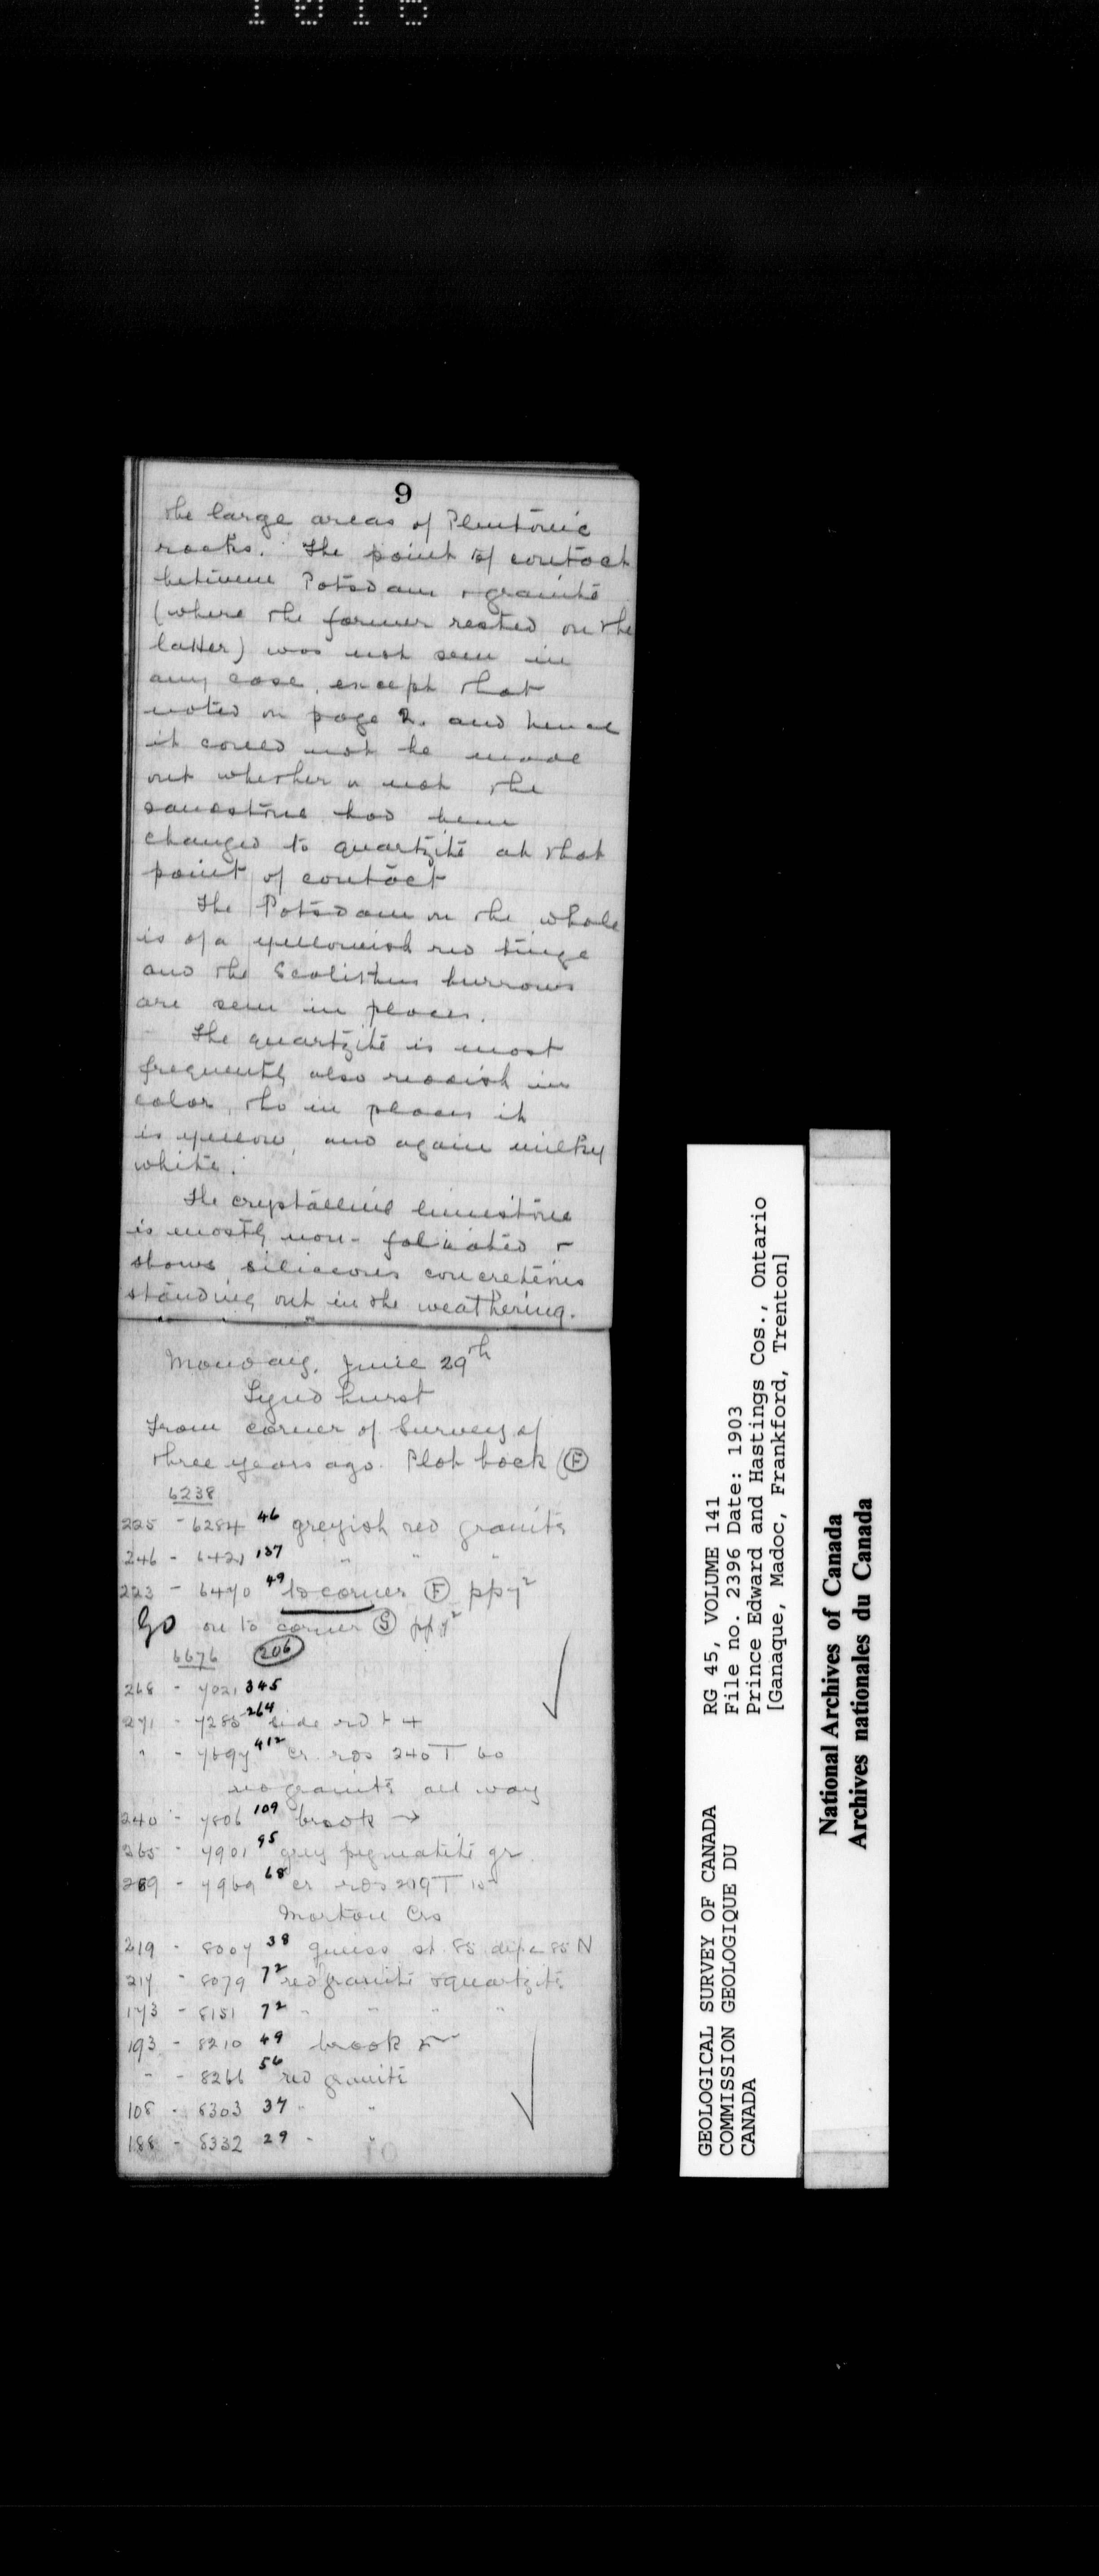 1016
9
the large areas of Plutonic
rocks. The point of contact
between Potsdam & granite
(where the former rested on the
latter) was not seen in
any case, except that
noted on page 2. and hence
it could not be made
out whether or not the
sandstone had been
changed to quartzite at that
point of contact
The Potsdam on the whole
is of a yellowish red tinge
and the Scolithus burrows
are seen in places.
The quartzite is most
frequently also reddish in
color, tho in places it
is yellow, and again milky
white.
The crystalline limestone
is mostly non-foliated &
shows siliceous concretions
standing out in the weathering.
Monday, June 29th
Lyndhurst
From corner of Survey of
three years ago. Plot back (F)
6238
225 - 6284 46 greyish red granite
246 - 6421 137 " " "
223 - 6470 49 to corner (F) pp 72
Go on to corner (S)
6676 206
268 - 7021 345
271 - 7285 264 side rd
" - 7697 412 cr rds 240 T 60
red granite all way
240 - 7806 109 brook →
265 - 7901 95 grey pegmatite gr.
269 - 7969 68 cr rds 219 T
Morton Crs
219 - 8007 38 gneiss st. 85 dip 85 N
217 - 8079 72 red granite & quartzite
173 - 8151 72 " " " "
193 - 8210 49 brook
" - 8266 56 red granite
108 - 8303 37 " "
188 - 8332 29 " "
GEOLOGICAL SURVEY OF CANADA
COMMISSION GEOLOGIQUE DU
CANADA
RG 45, VOLUME 141
File no. 2396 Date: 1903
Prince Edward and Hastings Cos., Ontario
[Ganaque, Madoc, Frankford, Trenton]
National Archives of Canada
Archives nationales du Canada